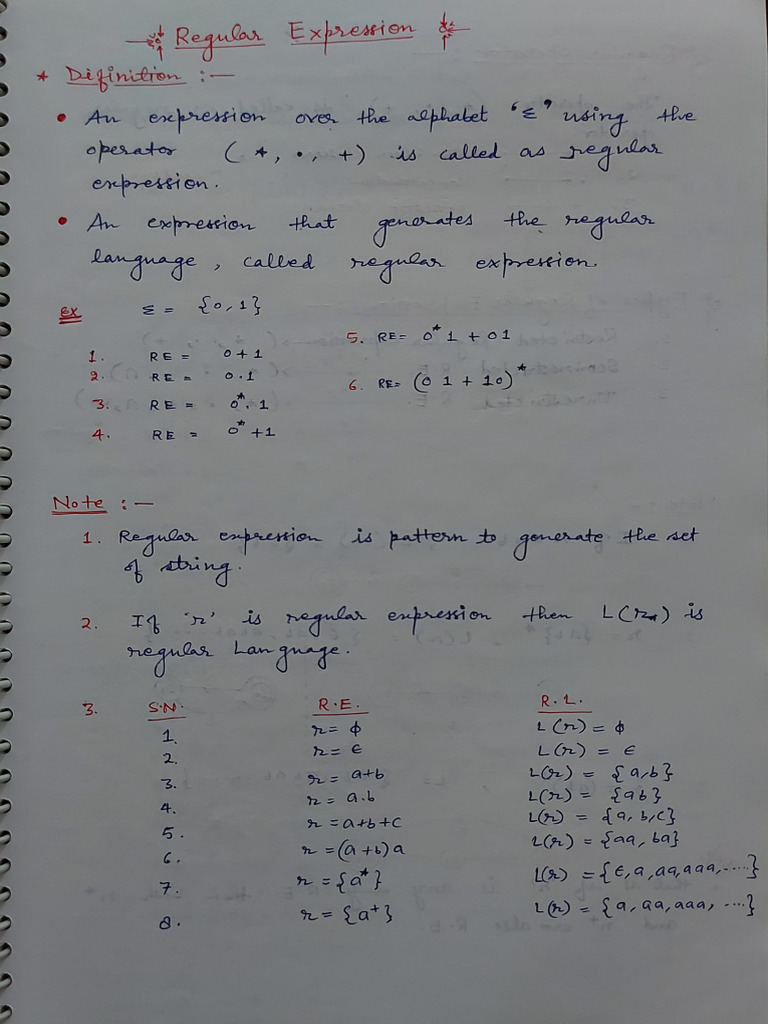 Regular Expression
* Definition :—
• An expression over the alphabet 'Σ' using the
operator (*, •, +) is called as regular
expression.
• An expression that generates the regular
language, called regular expression.
Ex Σ = {0,1}
1. RE = 0+1
2. RE = 0.1
3. RE = 0*.1
4. RE = 0*+1
5. RE= 0*1 + 01
6. RE= (01 + 10)*
Note :—
1. Regular expression is pattern to generate the set
of string.
2. If 'r' is regular expression then L(r) is
regular Language.
3. S.N. R.E. R.L.
1. r= ϕ L(r) = ϕ
2. r= ϵ L(r) = ϵ
3. r= a+b L(r) = {a,b}
4. r= a.b L(r) = {ab}
5. r=a+b+c L(r) = {a,b,c}
6. r=(a+b)a L(r) = {aa, ba}
7. r={a*} L(r) = {ϵ,a,aa,aaa,.....}
8. r= {a+} L(r) = {a,aa,aaa, ....}